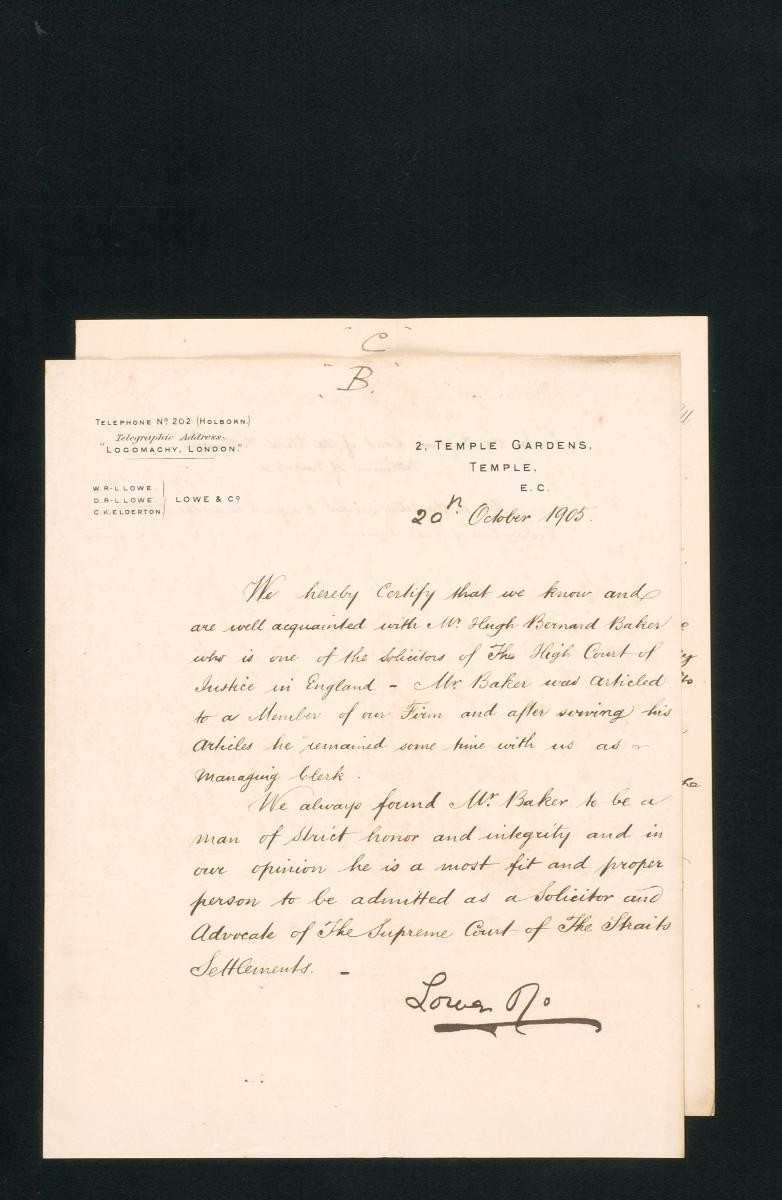 "C"
"B"
TELEPHONE Nº 202 (HOLBORN.)
Telegraphic Address-
"LOGOMACHY, LONDON."
W.R-L.LOWE.
D.R-L.LOWE.
C.K.ELDERTON
LOWE & Cº
2, TEMPLE GARDENS,
TEMPLE,
E.C.
20th October 1905.
We hereby Certify that we know and
are well acquainted with Mr. Hugh Bernard Baker
who is one of the Solicitors of The High Court of
Justice in England - Mr. Baker was Articled
to a Member of our Firm and after serving his
Articles he remained some time with us as a
Managing Clerk.
We always found Mr. Baker to be a
man of Strict honor and integrity and in
our opinion he is a most fit and proper
person to be admitted as a Solicitor and
Advocate of The Supreme Court of The Straits
Settlements. -
Lowe & Co